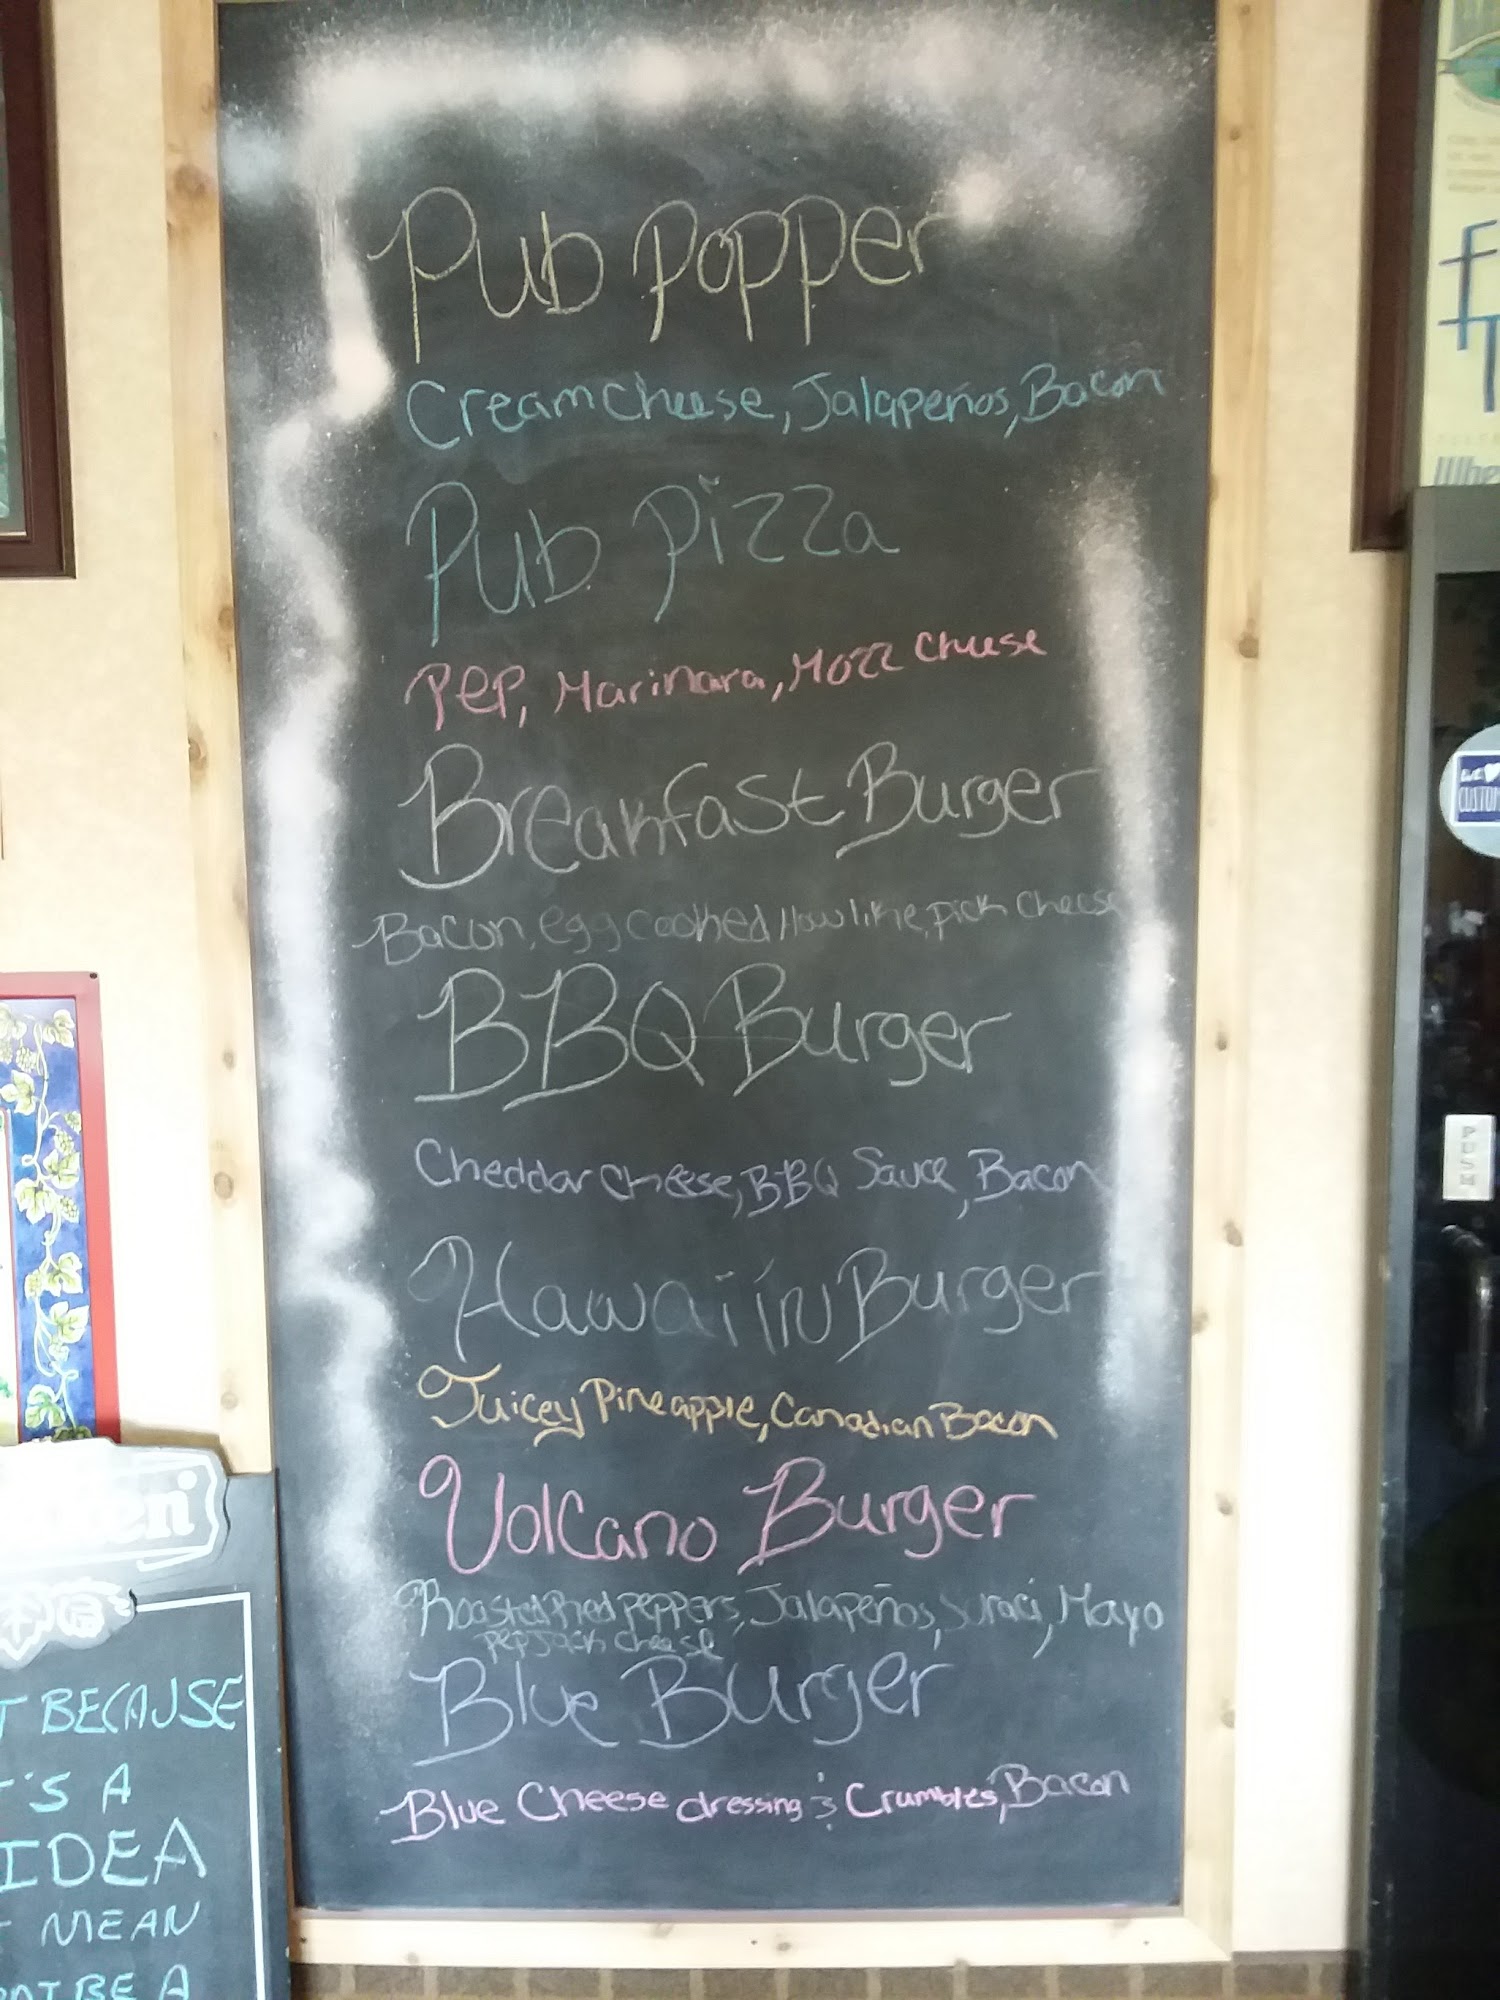 Pub Popper
Cream Cheese, Jalapeños, Bacon
Pub Pizza
Pep, Marinara, Mozz Cheese
Breakfast Burger
Bacon, egg cooked How like, pick cheese
BBQ Burger
Cheddar Cheese, BBQ Sauce, Bacon
Hawaiiin Burger
Juicey Pineapple, Canadian Bacon
Volcano Burger
Roasted Red peppers, Jalapeños, Suraci, Mayo
pepJack cheese
Blue Burger
Blue Cheese dressing & Crumbles, Bacon
BECAUSE
'S A
IDEA
MEAN
BE A
PUSH